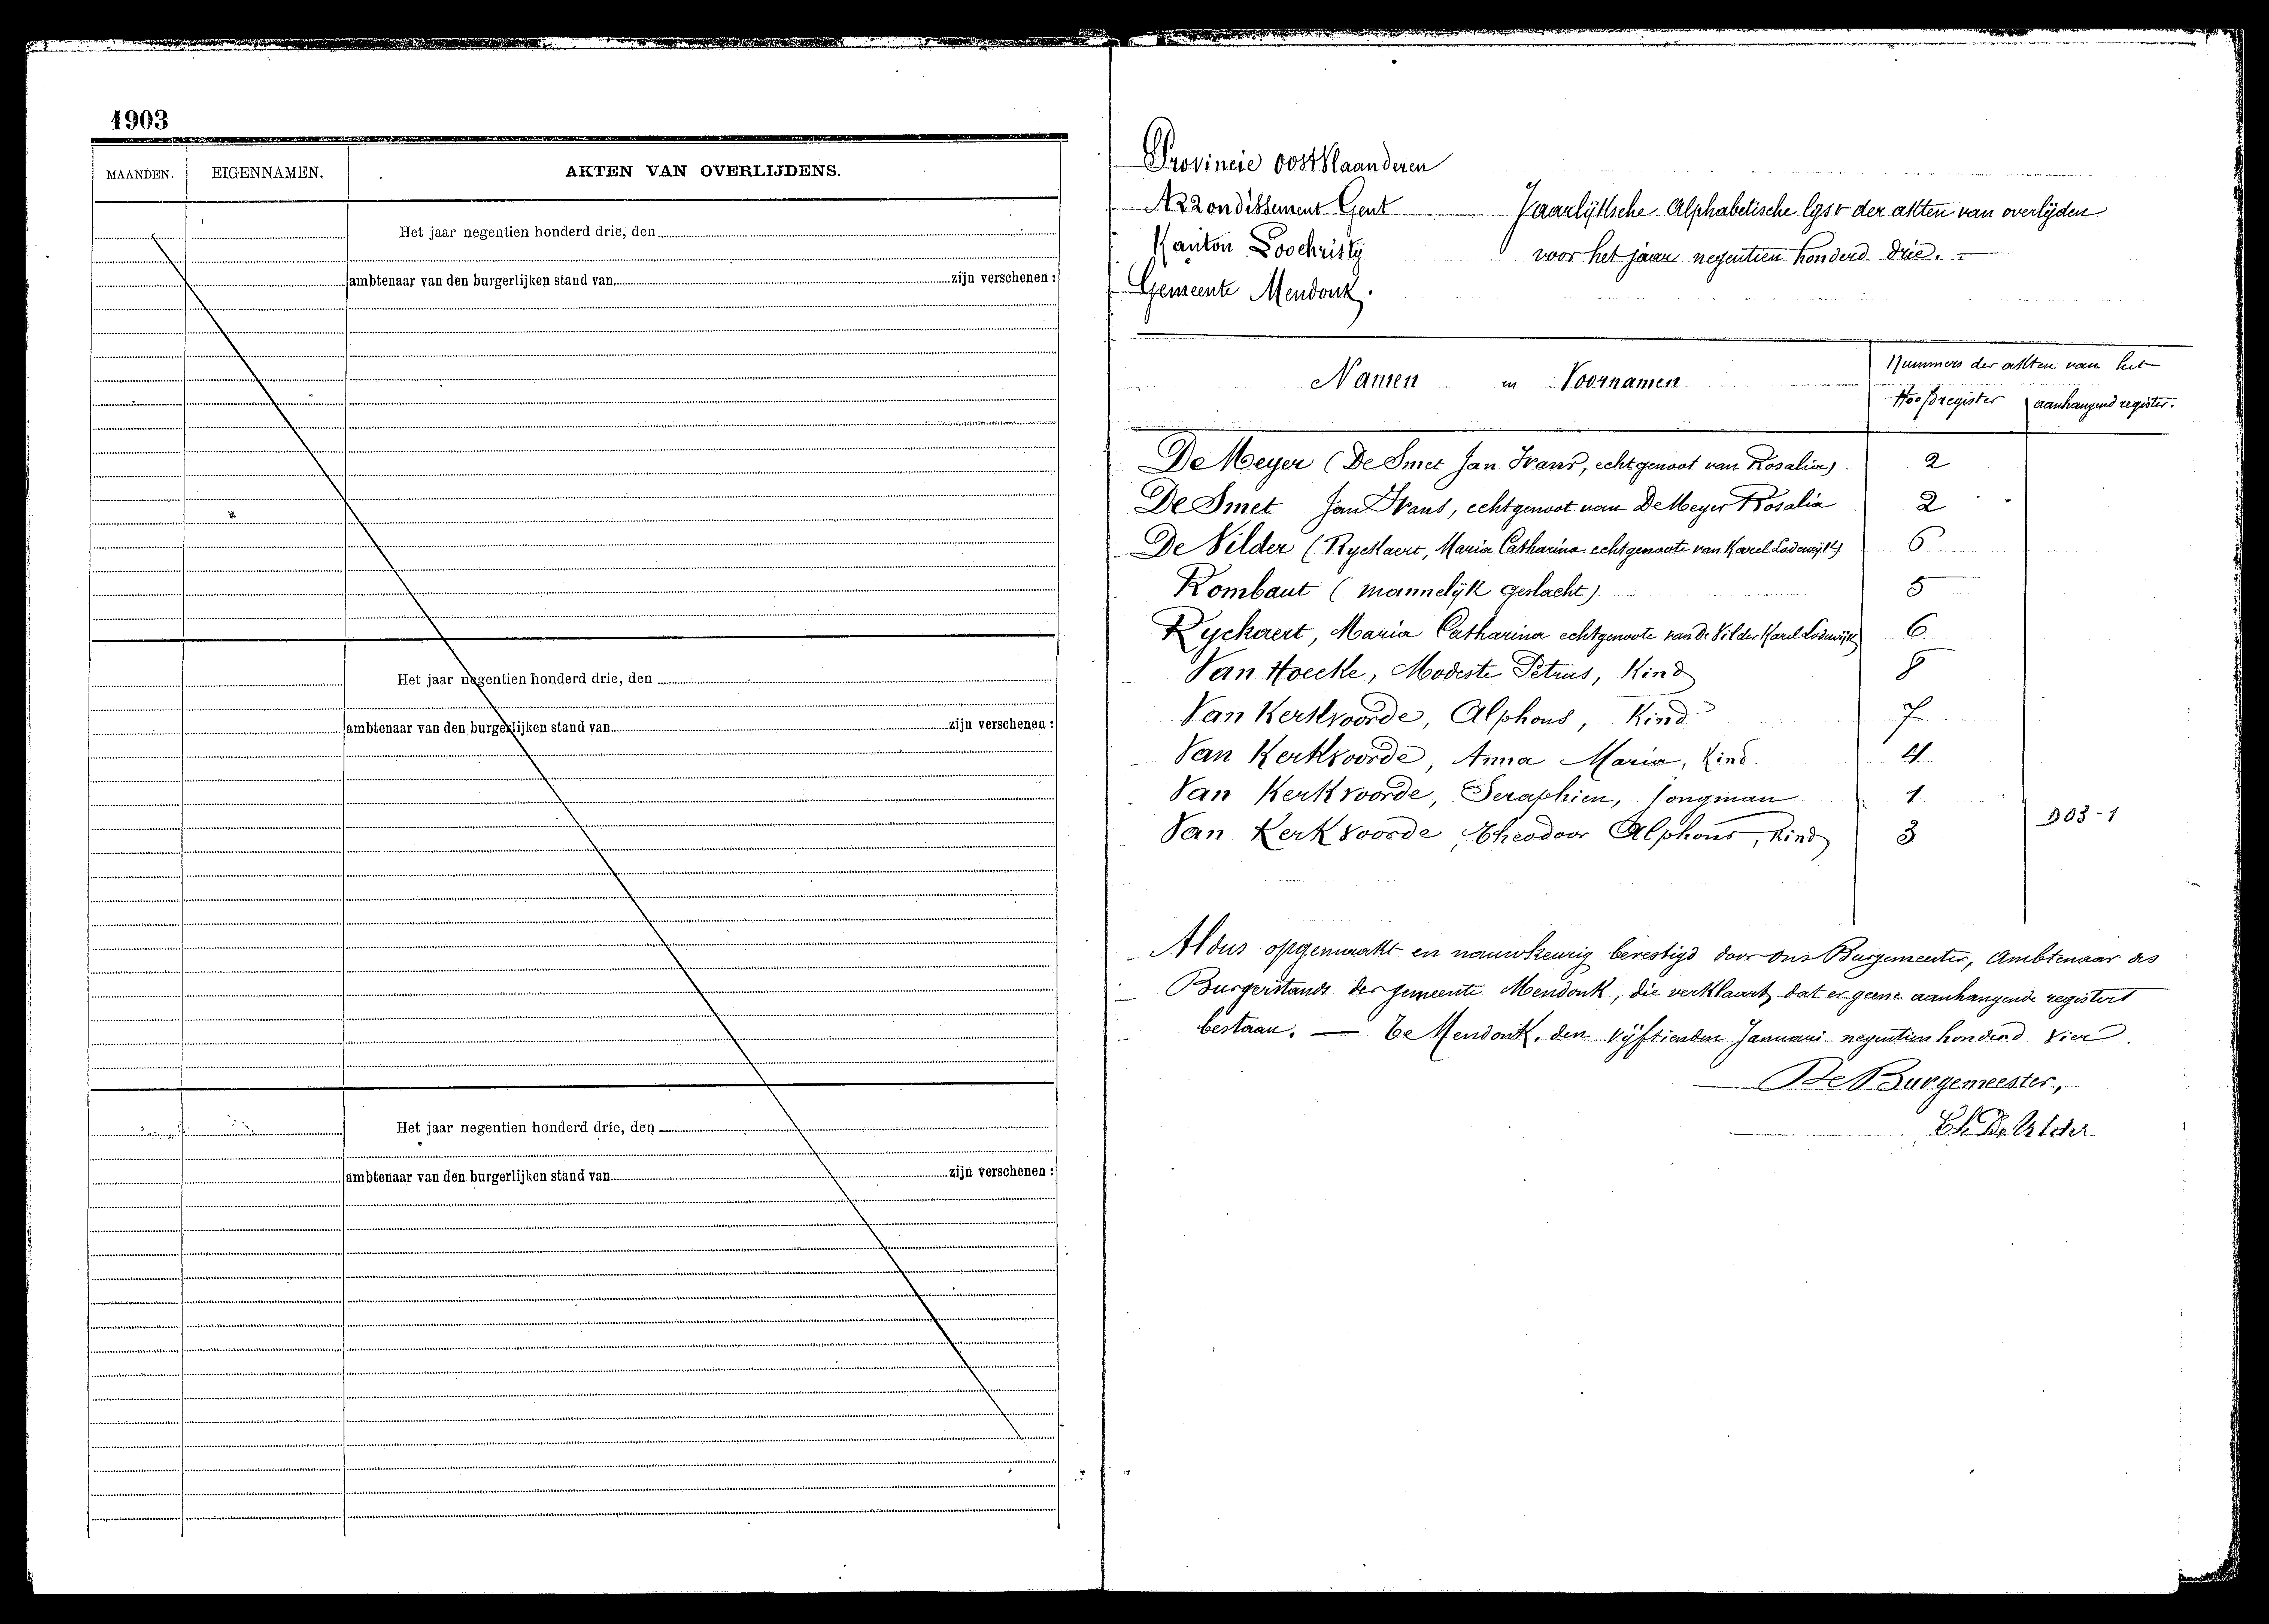 1903
MAANDEN. EIGENNAMEN. AKTEN VAN OVERLIJDENS.
Het jaar negentien honderd drie, den
ambtenaar van den burgerlijken stand van zijn verschenen :
Het jaar negentien honderd drie, den
ambtenaar van den burgerlijken stand van zijn verschenen :
Het jaar negentien honderd drie, den
ambtenaar van den burgerlijken stand van zijn verschenen :
Provincie oostVlaanderen
Arrondissement Gent
Kanton Loochristy
Gemeente Mendonk.
Jaarlijksche Alphabetische lyst der akten van overlijden
voor het jaar negentien honderd drie.
Namen en Voornamen
Nummers der akten van het
Hoofdregister aanhangend register.
De Meyer (De Smet Jan Frans, echtgenoot van Rosalia) 2
De Smet Jan Frans, echtgenoot van De Meyer Rosalia 2
De Vilder (Ryckaert, Maria Catharina echtgenoote van Karel Lodewijk) 6
Rombaut (mannelijk geslacht) 5
Ryckaert, Maria Catharina echtgenoote van De Vilder Karel Lodewijk 6
Van Hoecke, Modeste Petrus, Kind 8
Van Kerkvoorde, Alphons, Kind 7
Van Kerkvoorde, Anna Maria, Kind 4
Van Kerkvoorde, Seraphien, Jongman 1
Van Kerkvoorde, Theodoor Alphons, Kind 3
D03-1
Aldus opgemaakt en nauwkeurig bevestigd door ons Burgemeester, Ambtenaar des
Burgerstands der gemeente Mendonk, die verklaart dat er geene aanhangende registers
bestaan. — Te Mendonk, den vijftienden Januari negentien honderd vier.
De Burgemeester,
De Vilder